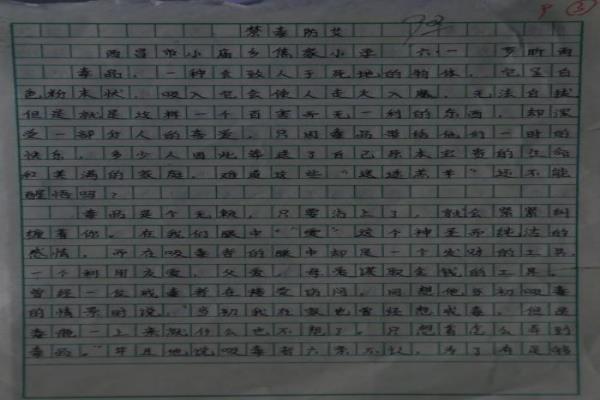 禁毒防艾
西昌市小庙乡焦家小学 六一 罗
毒品，一种食致人于死地的物体，它呈白
色粉末状，吸入它会使人走火入魔，无法自拔
但是就是这样一个百害而无一利的东西，却深
受一部分人的喜爱，只因毒品带给他们一时的
快乐，多少人因此葬送了自己原本宝贵的生命
和美满的家庭，难道这些"迷途羔羊"还不能
醒悟吗？
毒品是个无赖，只要沾上了，就会紧紧纠
缠着你。在我们眼中"爱"这个神圣而纯洁的
感情，而在吸毒者的眼中却是一个发财的工具，
一个利用友爱，父爱，母爱谋取金钱的工具。
曾经一位戒毒者在接受访问，问想他当初吸毒
的情景时说，"当初我在家也曾经想戒毒，但是
毒瘾一上来就什么也不想了，只想着怎么弄到
毒品。"并且他说吸毒者六亲不认，为了有足够